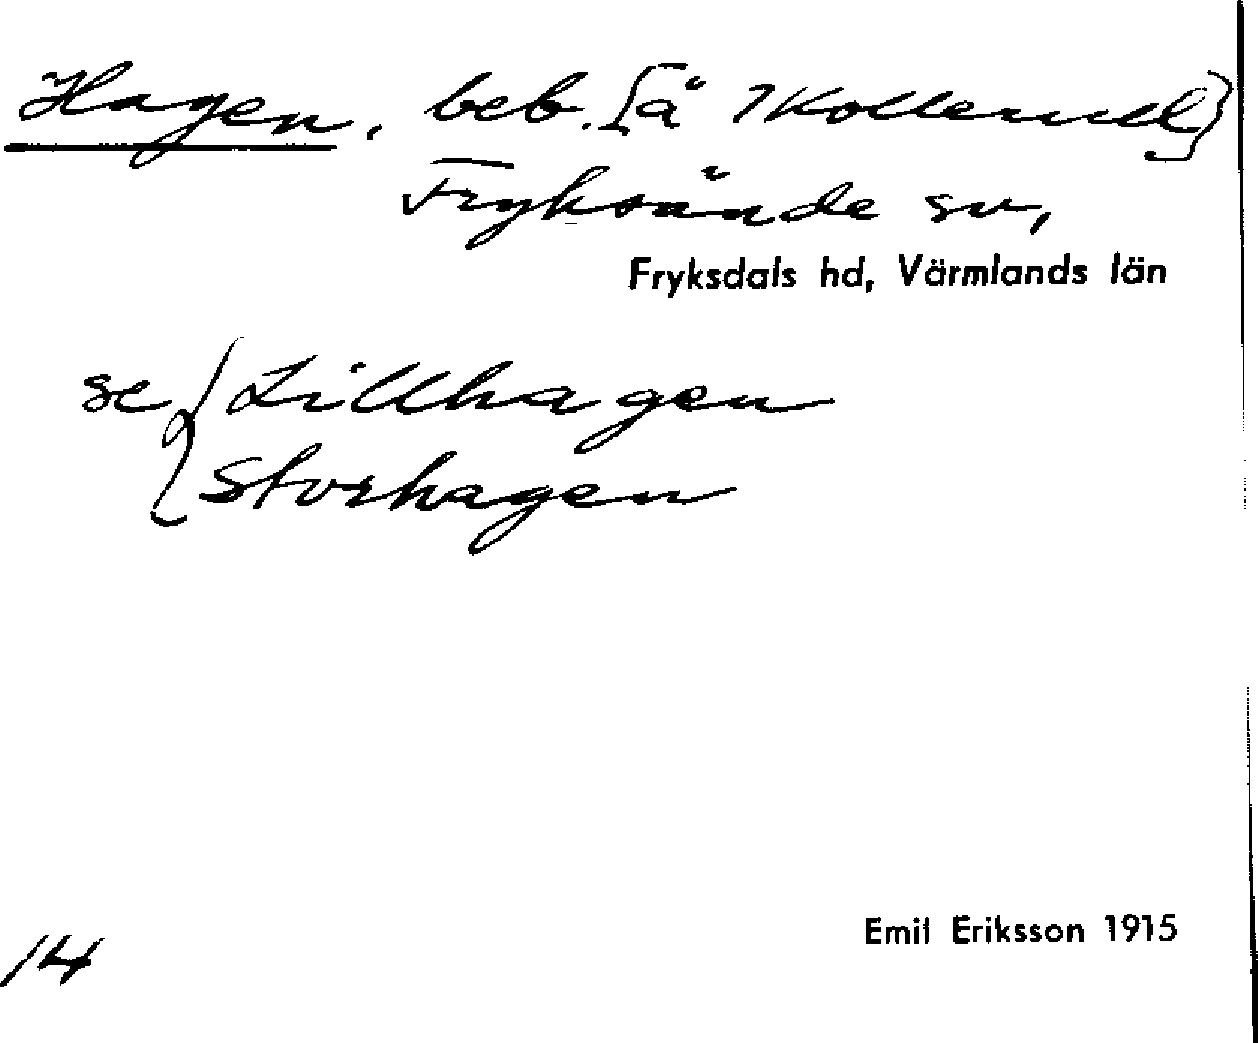 Hagen, beb. [å 1 Kollerud]
Fryksände sn,
Fryksdals hd, Värmlands län
se { Lillhagen
Storhagen
Emil Eriksson 1915
14